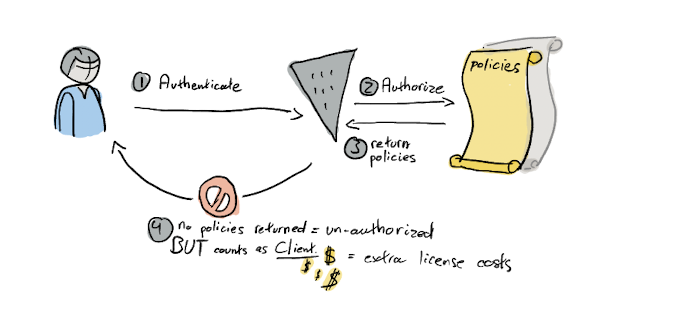 1 Authenticate
2 Authorize
3 return
policies
policies
4 no policies returned = un-authorized
BUT counts as Client $ = extra license costs
$ $ $